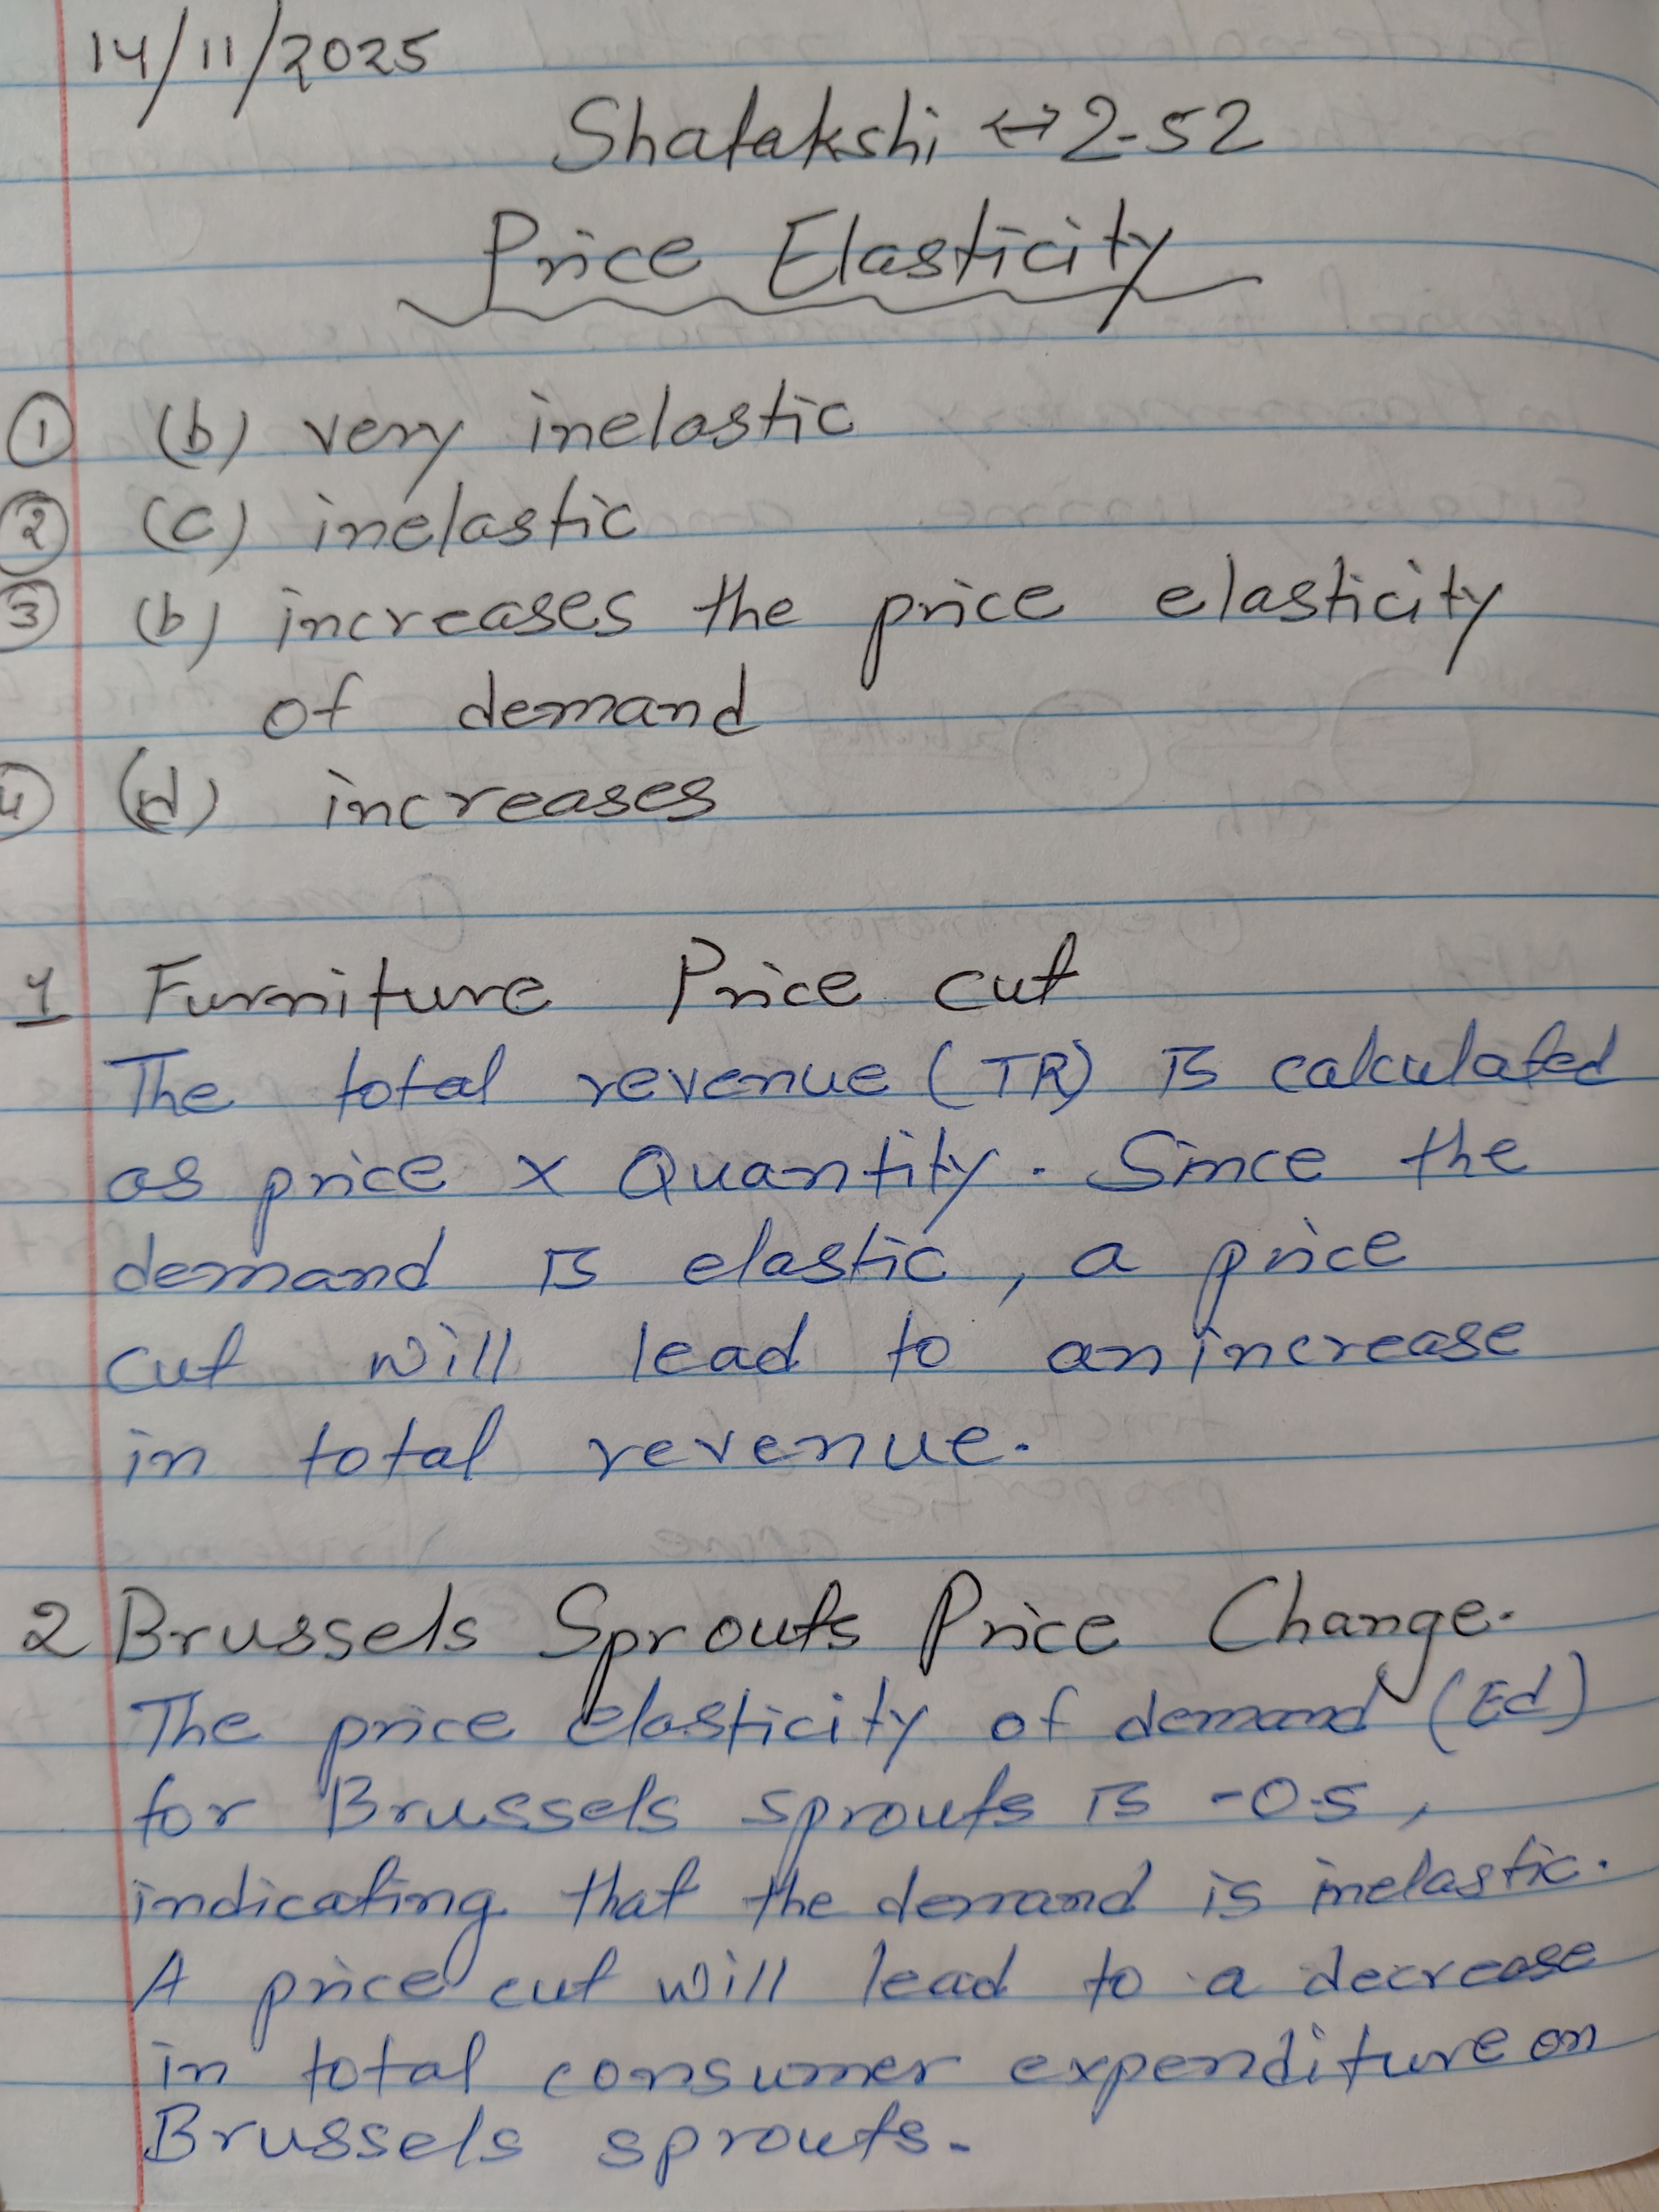 14/11/2025
Shatakshi ↔ 2-52
Price Elasticity
① (b) very inelastic
② (c) inelastic
③ (b) increases the price elasticity
of demand
④ (d) increases
1 Furniture Price cut
The total revenue (TR) is calculated
as price x Quantity. Since the
demand is elastic, a price
cut will lead to an increase
in total revenue.
2 Brussels Sprouts Price Change.
The price elasticity of demand (Ed)
for Brussels sprouts is -0.5,
indicating that the demand is inelastic.
A price cut will lead to a decrease
in total consumer expenditure on
Brussels sprouts.